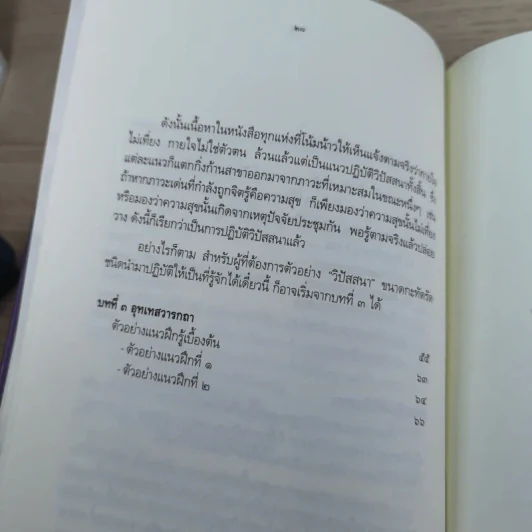 ๒๐
ดังนั้นเนื้อหาในหนังสือทุกแห่งที่โน้มน้าวให้เห็นแจ้งตามจริงว่ากายใจ
ไม่เที่ยง กายใจไม่ใช่ตัวตน ล้วนแล้วแต่เป็นแนวปฏิบัติวิปัสสนาทั้งสิ้น ซึ่ง
แต่ละแนวก็แตกกิ่งก้านสาขาออกมาจากภาวะที่เหมาะสมในขณะหนึ่งๆ เช่น
ถ้าหากภาวะเด่นที่กำลังถูกจิตรู้คือความสุข ก็เพียงมองว่าความสุขนั้นไม่เที่ยง
หรือมองว่าความสุขนั้นเกิดจากเหตุปัจจัยประชุมกัน พอรู้ตามจริงแล้วปล่อย
วาง ดังนี้ก็เรียกว่าเป็นการปฏิบัติวิปัสสนาแล้ว
อย่างไรก็ตาม สำหรับผู้ที่ต้องการตัวอย่าง “วิปัสสนา” ขนาดกะทัดรัด
ชนิดนำมาปฏิบัติให้เป็นที่รู้จักได้เดี๋ยวนี้ ก็อาจเริ่มจากบทที่ ๓ ได้
บทที่ ๓ อุทเทสวารกถา ๕๕
ตัวอย่างแนวฝึกรู้เบื้องต้น ๖๓
- ตัวอย่างแนวฝึกที่ ๑ ๖๔
- ตัวอย่างแนวฝึกที่ ๒ ๖๖